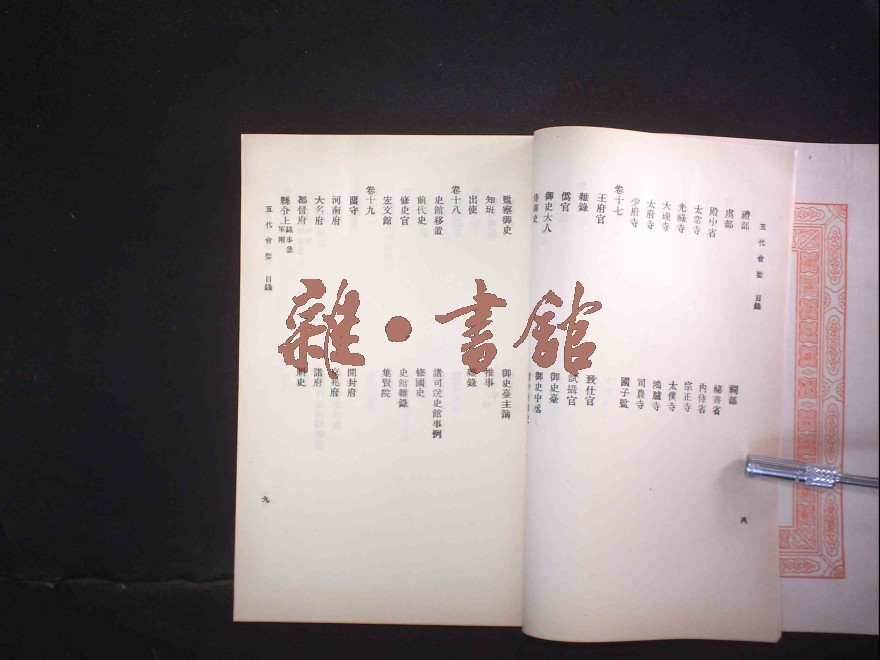 五代會要 目錄
禮部 祠部
虞部 祕書省
殿中省 內侍省
太常寺 宗正寺
光祿寺 太僕寺
大理寺 鴻臚寺
太府寺 司農寺
少府寺 國子監
卷十七
王府官 致仕官
雜錄 試攝官
僞官 御史臺
御史大人 御史中丞
八
監察御史 御史臺主簿
知班 推事
出使 雜錄
卷十八
史館移置 諸司送史館事例
前代史 修國史
修史官 史館雜錄
宏文館 集賢院
卷十九
開封府
河南府 京兆府
大名府 諸府
都督府 刺史
縣令上
五代會要 目錄
九
雜·書館